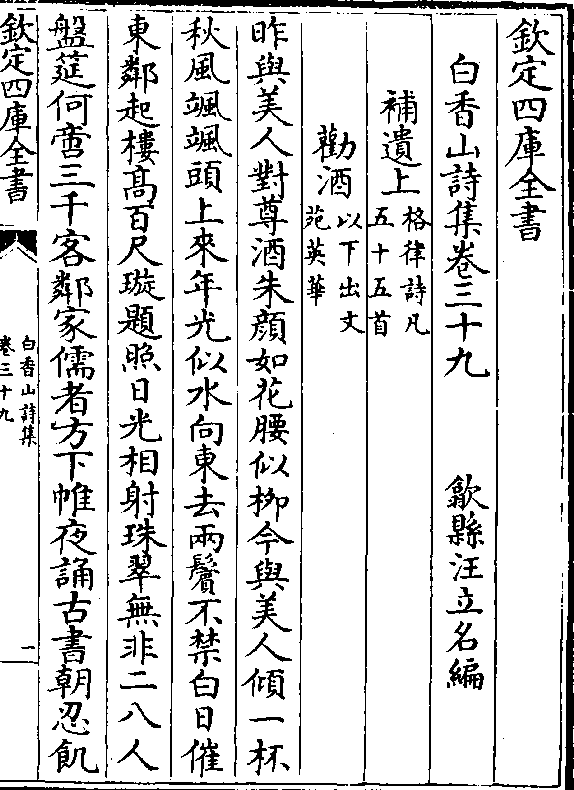 欽定四庫全書
白香山詩集卷三十九 歙縣汪立名編
補遺上 格律詩凡
五十五首
勸酒 以下出文
苑英華
昨與美人對尊酒朱顔如花腰似栁今與美人傾一杯
秋風颯颯頭上來年光似水向東去兩鬢不禁白日催
東鄰起樓髙百尺璇題照日光相射珠翠無非二八人
盤筵何啻三千客鄰家儒者方下帷夜誦古書朝忍飢
欽定四庫全書
白香山詩集
卷三十九
一